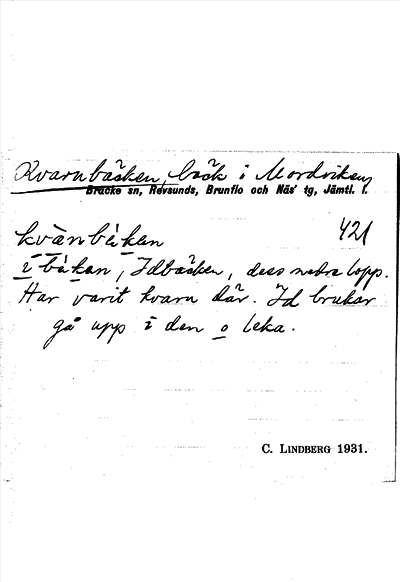 Kvarnbäcken, bäck i Mordviken,
Bräcke sn, Revsunds, Brunflo och Näs' tg, Jämtl. l.
kvànbékan 421
ībékan, Idbäcken, dess nedre lopp.
Har varit kvarn där. Id brukar
gå upp i den o leka.
C. LINDBERG 1931.